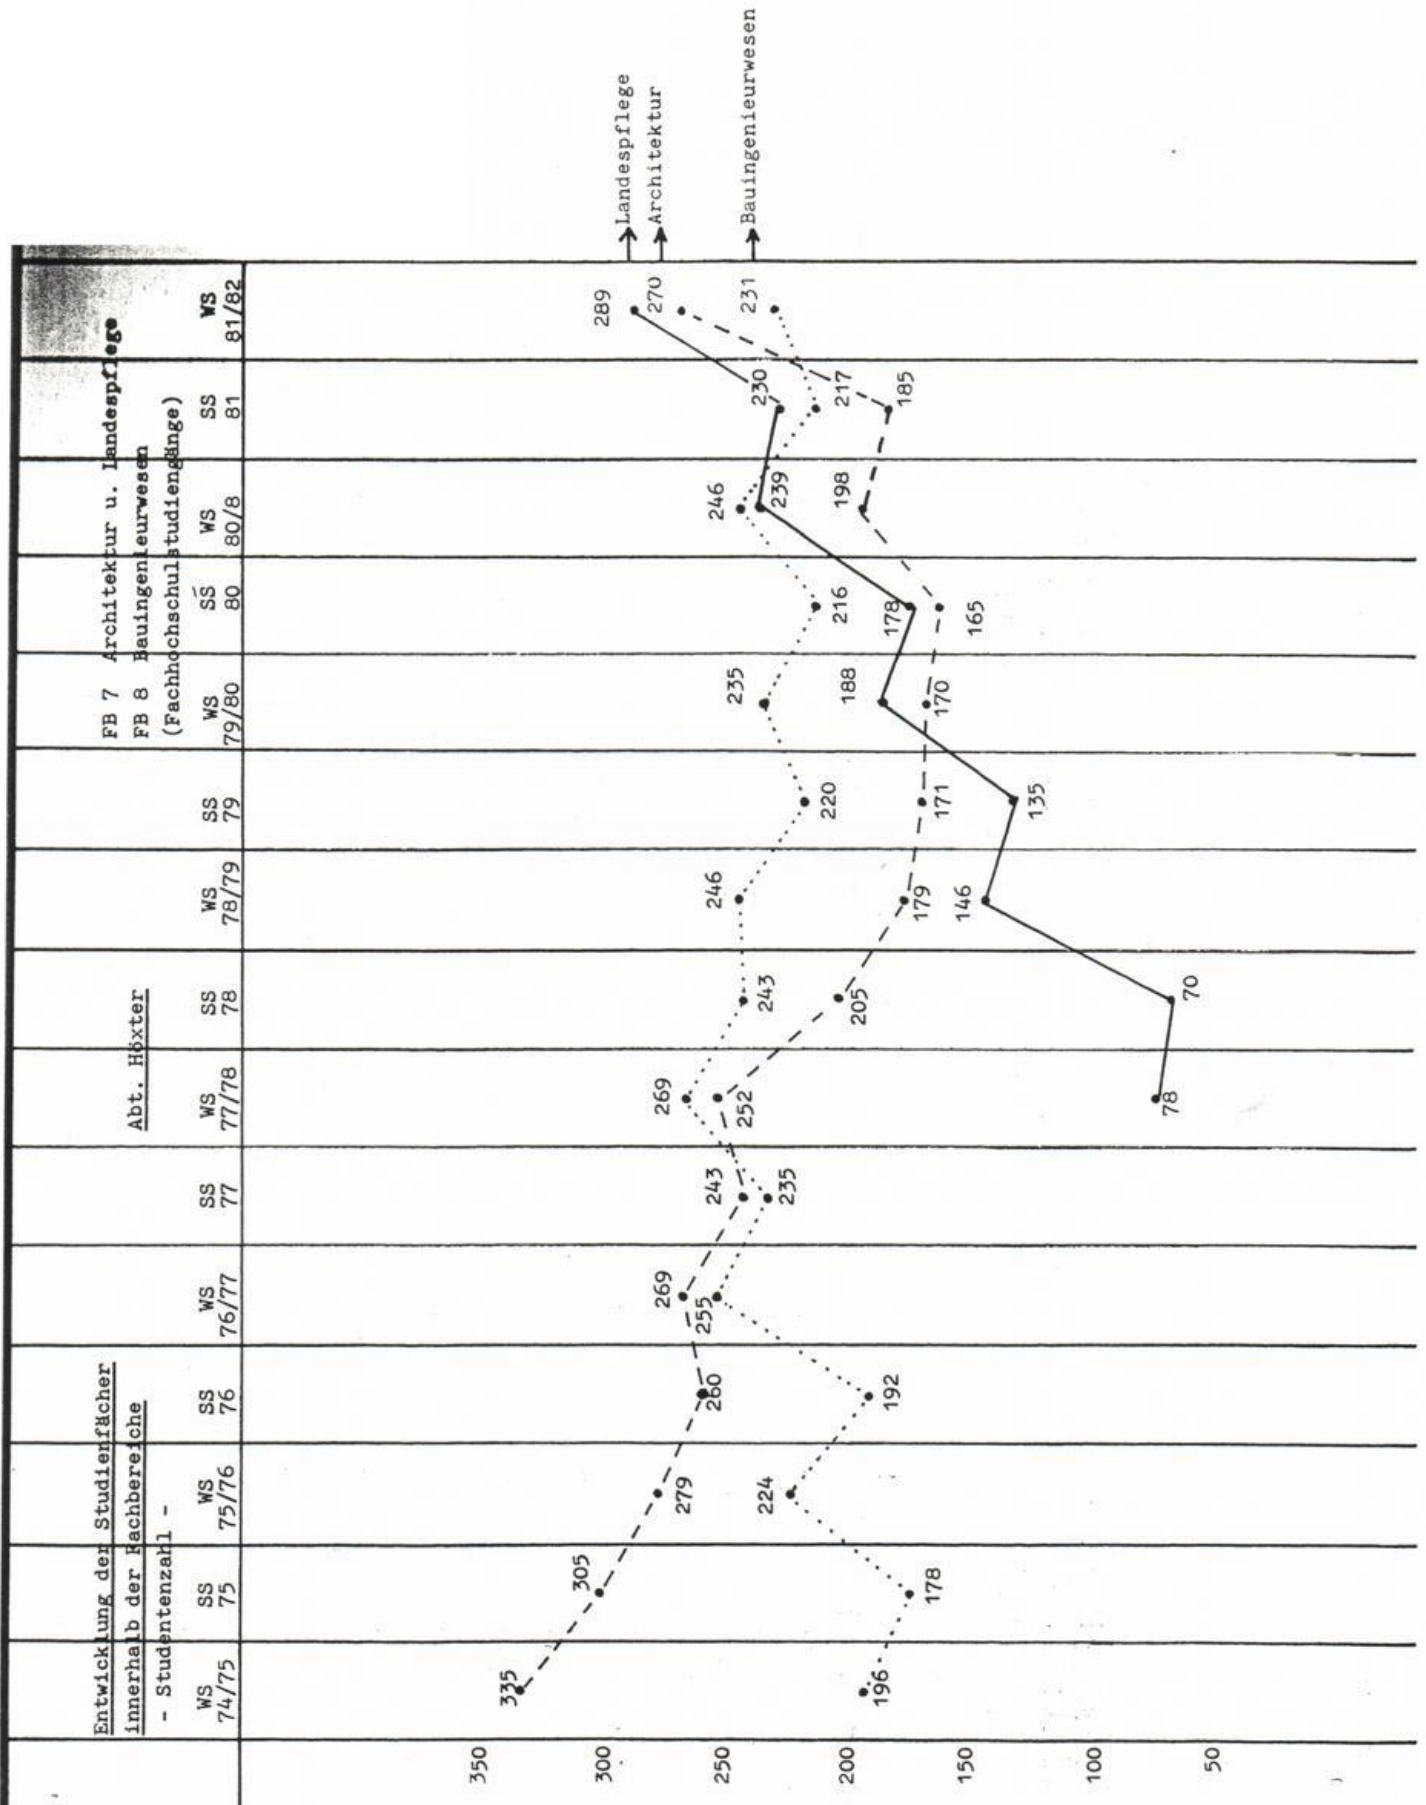 Entwicklung der Studienfächer
innerhalb der Fachbereiche
- Studentenzahl -
Abt. Höxter
FB 7 Architektur u. Landespflege
FB 8 Bauingenieurwesen
(Fachhochschulstudiengänge)
WS SS WS SS WS SS WS SS WS SS WS SS WS SS WS
74/75 75 75/76 76 76/77 77 77/78 78 78/79 79 79/80 80 80/8 81 81/82
350
300
250
200
150
100
50
335 305 279 260 269 243 252 205 179 171 170 165 198 185 270
196 178 224 192 255 235 269 243 246 220 235 216 246 217 231
78 70 146 135 188 178 239 230 289
Landespflege
Architektur
Bauingenieurwesen